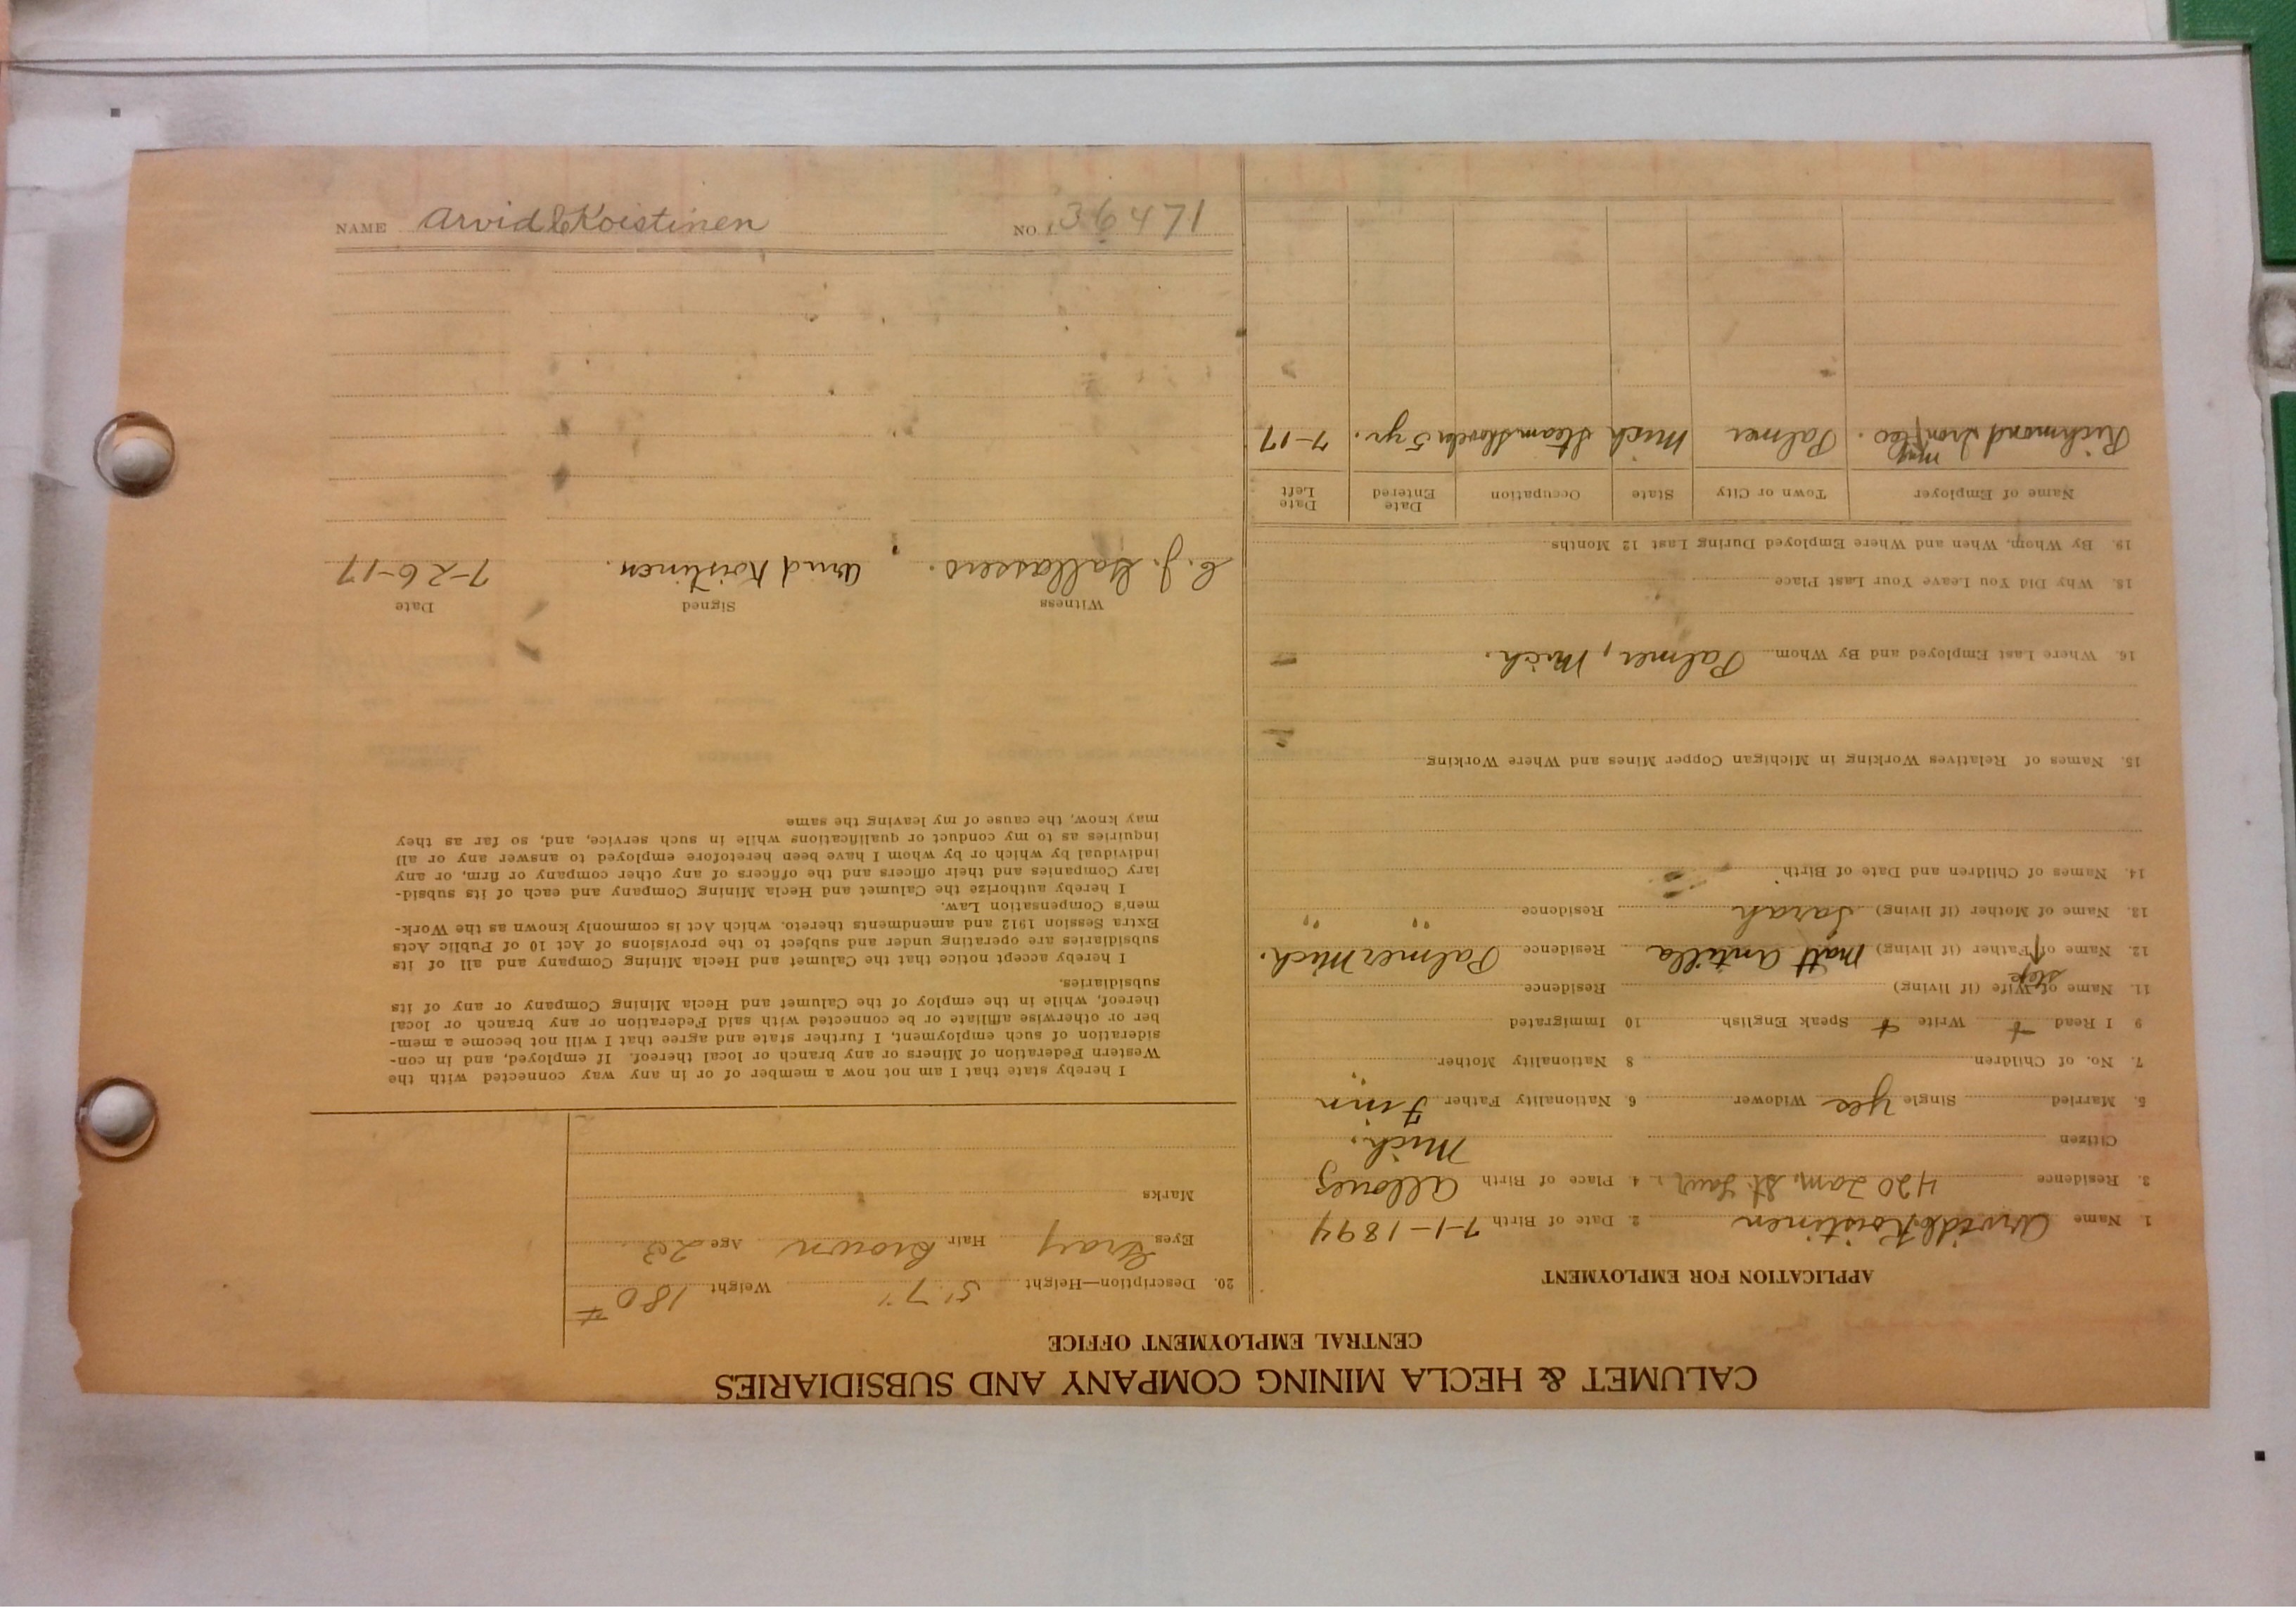 CALUMET & HECLA MINING COMPANY AND SUBSIDIARIES
CENTRAL EMPLOYMENT OFFICE
APPLICATION FOR EMPLOYMENT
1. Name Arvid Koistinen 2. Date of Birth 7-1-1894
3. Residence 420 Lam. St. Laur. 4. Place of Birth Allouez
Mich.
Citizen
5. Married Single yes Widower 6. Nationality Father Finn
7. No. of Children 8 Nationality Mother "
9 I Read + Write + Speak English 10 Immigrated
11. Name of Wife (if living) Residence
step
12. Name of Father (if living) Matt Antilla Residence Palmer Mich.
13. Name of Mother (if living) Sarah Residence " "
14. Names of Children and Date of Birth
15. Names of Relatives Working in Michigan Copper Mines and Where Working
16. Where Last Employed and By Whom Palmer, Mich.
18. Why Did You Leave Your Last Place
19. By Whom, When and Where Employed During Last 12 Months
Name of Employer Town or City State Occupation Date Entered Date Left
Richmond Iron Co. Palmer Mich Steam Shovel 5 yr. 7-17
20. Description—Height 5' 7" Weight 180 #
Eyes Gray Hair Brown Age 23
Marks
I hereby state that I am not now a member of or in any way connected with the
Western Federation of Miners or any branch or local thereof. If employed, and in con-
sideration of such employment, I further state and agree that I will not become a mem-
ber or otherwise affiliate or be connected with said Federation or any branch or local
thereof, while in the employ of the Calumet and Hecla Mining Company or any of its
subsidiaries.
I hereby accept notice that the Calumet and Hecla Mining Company and all of its
subsidiaries are operating under and subject to the provisions of Act 10 of Public Acts
Extra Session 1912 and amendments thereto. which Act is commonly known as the Work-
men's Compensation Law.
I hereby authorize the Calumet and Hecla Mining Company and each of its subsid-
iary Companies and their officers and the officers of any other company or firm, or any
individual by which or by whom I have been heretofore employed to answer any or all
inquiries as to my conduct or qualifications while in such service, and, so far as they
may know, the cause of my leaving the same
Witness Signed Date
Arvid Koistinen. 7-26-17
NAME Arvid Koistinen NO. 36471